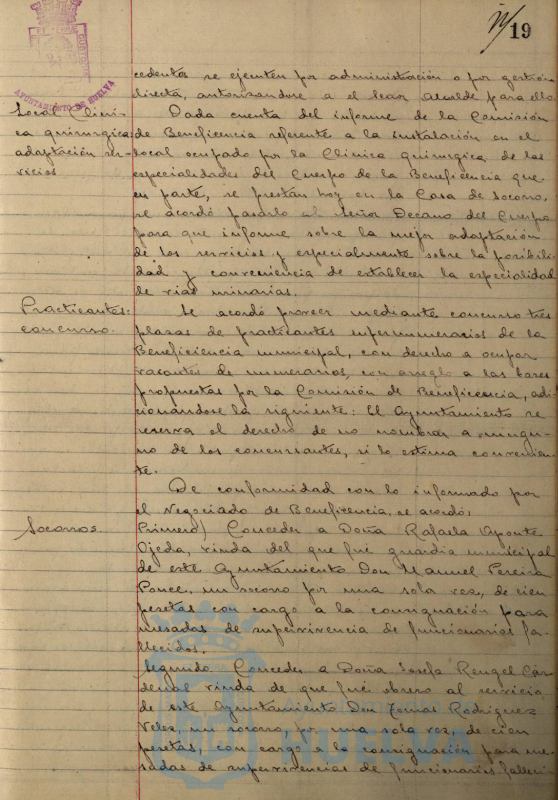 19
AYUNTAMIENTO DE HUELVA
cedentes se ejecuten por administración o por gestión
directa, autorizándose a el Señor Alcalde para ello
Local Clíni-
ca quirúrgica:
adaptación ser-
vicios
Dada cuenta del informe de la Comisión
de Beneficencia referente a la instalación en el
local ocupado por la Clínica quirúrgica de las
especialidades del Cuerpo de la Beneficencia que
en parte, se prestan hoy en la Casa de Socorro,
se acordó pasarlo al Señor Decano del Cuerpo
para que informe sobre la mejor adaptación
de los servicios y especialmente sobre la posibili-
dad y conveniencia de establecer la especialidad
de vías urinarias.
Practicantes:
concurso.
Se acordó proveer mediante concurso tres
plazas de practicantes supernumerarios de la
Beneficiencia municipal, con derecho a ocupar
vacantes de numerarios, con arreglo a las bases
propuestas por la Comisión de Beneficencia, adi-
cionándose la siguiente: El Ayuntamiento se
reserva el derecho de no nombrar a ningu-
no de los concursantes, si lo estima convenien-
te.
Socorros.
De conformidad con lo informado por
el Negociado de Beneficencia, se acordó:
Primero) Conceder a Doña Rafaela Aponte
Ojeda, viuda del que fué guardia municipal
de este Ayuntamiento Don Manuel Pereira
Ponce, un socorro por una sola vez, de cien
pesetas con cargo a la consignación para
mesadas de supervivencia de funcionarios fa-
llecidos.
Segundo. Conceder a Doña Josefa Rengel Cár-
denas viuda de que fué obrero al servicio
de este Ayuntamiento Don Tomas Rodriguez
Velez, un socorro, por una sola vez, de cien
pesetas, con cargo a la consignación para me-
sadas de supervivencias de funcionarios falleci-
HUELVA